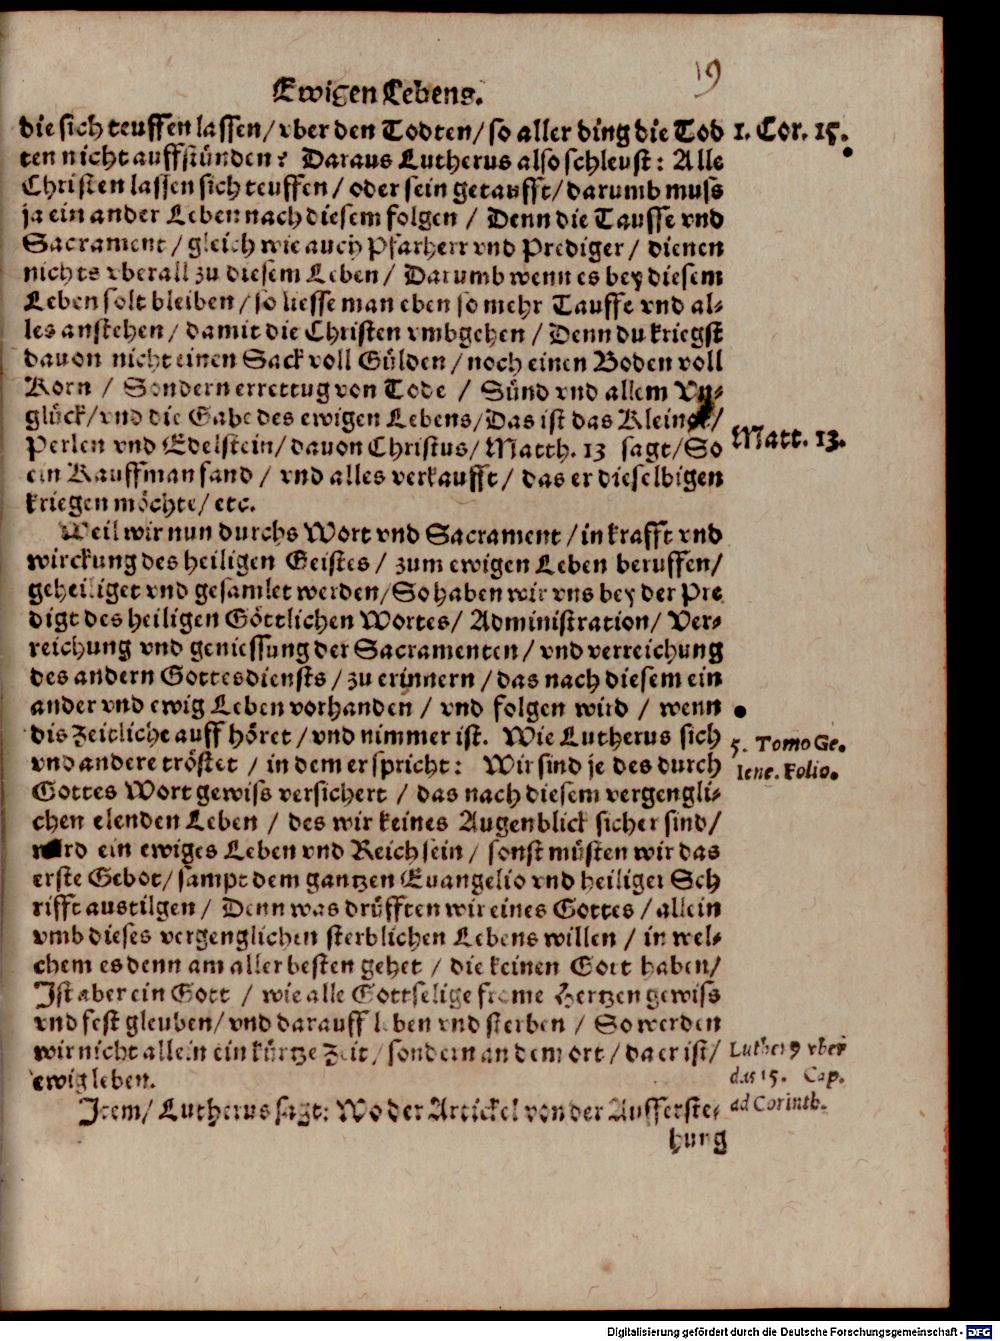 19
Ewigen Lebens.
die sich teuffen lassen/ vber den Todten/ so aller ding die Tod 1. Cor. 15.
ten nicht auffstünden? Daraus Lutherus also schleust: Alle
Christen lassen sich teuffen/ oder sein getaufft/ darumb muss
ja ein ander Leben nach diesem folgen/ Denn die Tauffe vnd
Sacrament/ gleich wie auch Pfarherr vnd Prediger/ dienen
nichts vberall zu diesem Leben/ Darumb wenn es bey diesem
Leben solt bleiben/ so liesse man eben so mehr Tauffe vnd al-
les anstehen/ damit die Christen vmbgehen/ Denn du kriegst
dauon nicht einen Sack voll Gülden/ noch einen Boden voll
Korn/ Sondern errettug von Tode/ Sünd vnd allem Vn-
glück/ vnd die Gabe des ewigen Lebens/ Das ist das Kleinot/
Perlen vnd Edelstein/ dauon Christus/ Matth. 13 sagt/ So Matt. 13.
ein Kauffman fand/ vnd alles verkaufft/ das er dieselbigen
kriegen möchte/ etc.
Weil wir nun durchs Wort vnd Sacrament/ in krafft vnd
wirckung des heiligen Geistes/ zum ewigen Leben beruffen/
geheiliget vnd gesamlet werden/ So haben wir vns bey der Pre
digt des heiligen Göttlichen Wortes/ Administration/ Ver-
reichung vnd geniessung der Sacramenten/ vnd verreichung
des andern Gottesdiensts/ zu erinnern/ das nach diesem ein
ander vnd ewig Leben vorhanden/ vnd folgen wird/ wenn
dis Zeitliche auff höret/ vnd nimmer ist. Wie Lutherus sich 5. Tomo Ge.
vnd andere tröstet/ in dem er spricht: Wir sind je des durch Iene. Folio.
Gottes Wort gewiss versichert/ das nach diesem vergengli-
chen elenden Leben/ des wir keines Augenblick sicher sind/
werd ein ewiges Leben vnd Reich sein/ sonst müsten wir das
erste Gebot/ sampt dem gantzen Euangelio vnd heiliger Sch
rifft austilgen/ Denn was drüfften wir eines Gottes/ allein
vmb dieses vergenglichen sterblichen Lebens willen/ in wel-
chem es denn am aller besten gehet/ die keinen Gott haben/
Ist aber ein Gott/ wie alle Gottselige frome Hertzen gewiss
vnd fest gleuben/ vnd darauff leben vnd sterben/ So werden
wir nicht allein ein kürtze Zeit/ sondern an dem ort/ da er ist/ Luther9 vber
ewig leben. das 15. Cap.
Item/ Lutherus sagt: Wo der Artickel von der Aufferste- ad Corinth.
hung
Digitalisierung gefördert durch die Deutsche Forschungsgemeinschaft - DFG